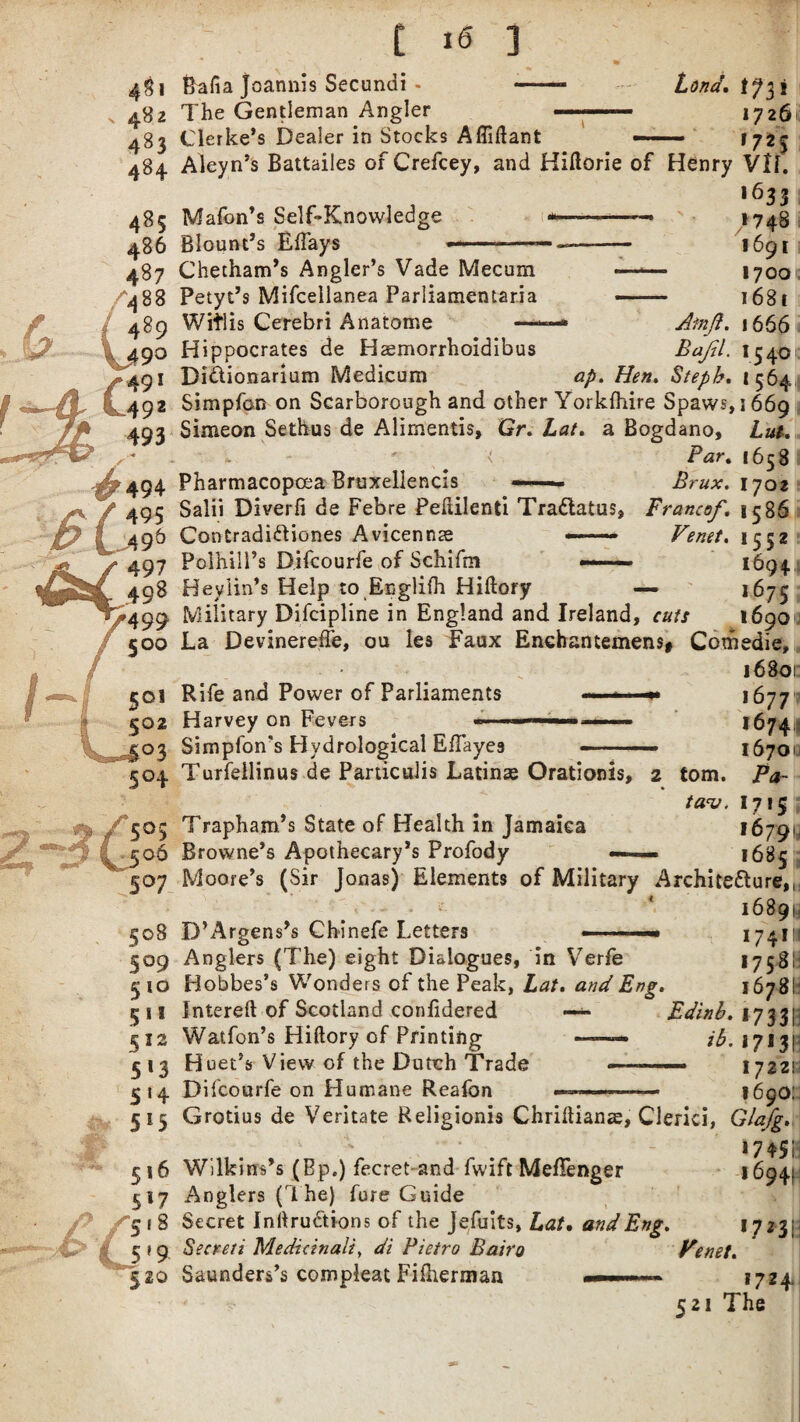 [ 16 ]
481 Baſia Joannis Secundi - —— Lond. 1731
482 The Gentleman Angler —— 1726
483 Clerke's Dealer in Stocks Aſſiſtant —— 1725
484 Aleyn's Battailes of Creſcey, and Hiſtorie of Henry VII.
1633
485 Maſon's Self-Knowledge —— 1748
486 Blount's Eſſays —— 1691
487 Chetham's Angler's Vade Mecum —— 1700
488 Petyt's Miſcellanea Parliamentaria —— 1681
489 Willis Cerebri Anatome —— Amſt. 1666
490 Hippocrates de Hæmorrhoidibus Baſil. 1540
491 Dictionarium Medicum ap. Hen. Steph. 1564
492 Simpſon on Scarborough and other Yorkſhire Spaws, 1669
493 Simeon Sethus de Alimentis, Gr. Lat. a Bogdano, Lut.
Par. 1658
494 Pharmacopœa Bruxellencis —— Brux. 1702
495 Salii Diverſi de Febre Peſtilenti Tractatus, Francof. 1586
496 Contradictiones Avicennæ —— Venet. 1552
497 Polhill's Diſcourſe of Schiſm —— 1694
498 Heylin's Help to Engliſh Hiſtory — 1675
499 Military Diſcipline in England and Ireland, cuts 1690
500 La Devinereſſe, ou les Faux Enchantemens, Comedie,
1680
501 Riſe and Power of Parliaments —— 1677
502 Harvey on Fevers —— 1674
503 Simpſon's Hydrological Eſſayes —— 1670
504 Turſellinus de Particulis Latinæ Orationis, 2 tom. Pa-
tav. 1715
505 Trapham's State of Health in Jamaica 1679
506 Browne's Apothecary's Proſody —— 1685
507 Moore's (Sir Jonas) Elements of Military Architecture,
1689
508 D'Argens's Chineſe Letters —— 1741
509 Anglers (The) eight Dialogues, in Verſe 1758
510 Hobbes's Wonders of the Peak, Lat. and Eng. 1678
511 Intereſt of Scotland conſidered — Edinb. 1733
512 Watſon's Hiſtory of Printing —— ib. 1713
513 Huet's View of the Dutch Trade —— 1722
514 Diſcourſe on Humane Reaſon —— 1690
515 Grotius de Veritate Religionis Chriſtianæ, Clerici, Glaſg.
1745
516 Wilkins's (Bp.) ſecret and ſwift Meſſenger 1694
517 Anglers (The) ſure Guide
518 Secret Inſtructions of the Jeſuits, Lat. and Eng. 1723
519 Secreti Medicinali, di Pietro Bairo Venet.
520 Saunders's compleat Fiſherman —— 1724
521 The